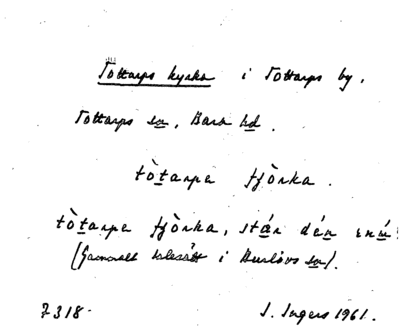 Tottarps kyrka i Tottarps by.
Tottarps sn, Bara hd.
tòtarpa fjòrka.
tòtarpa fjòrka, stán dén inú?
(Gammalt talesätt i Burlövs sn).
7318. I. Ingers 1961.